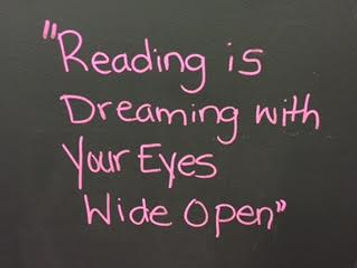 "Reading is
Dreaming with
Your Eyes
Wide Open"